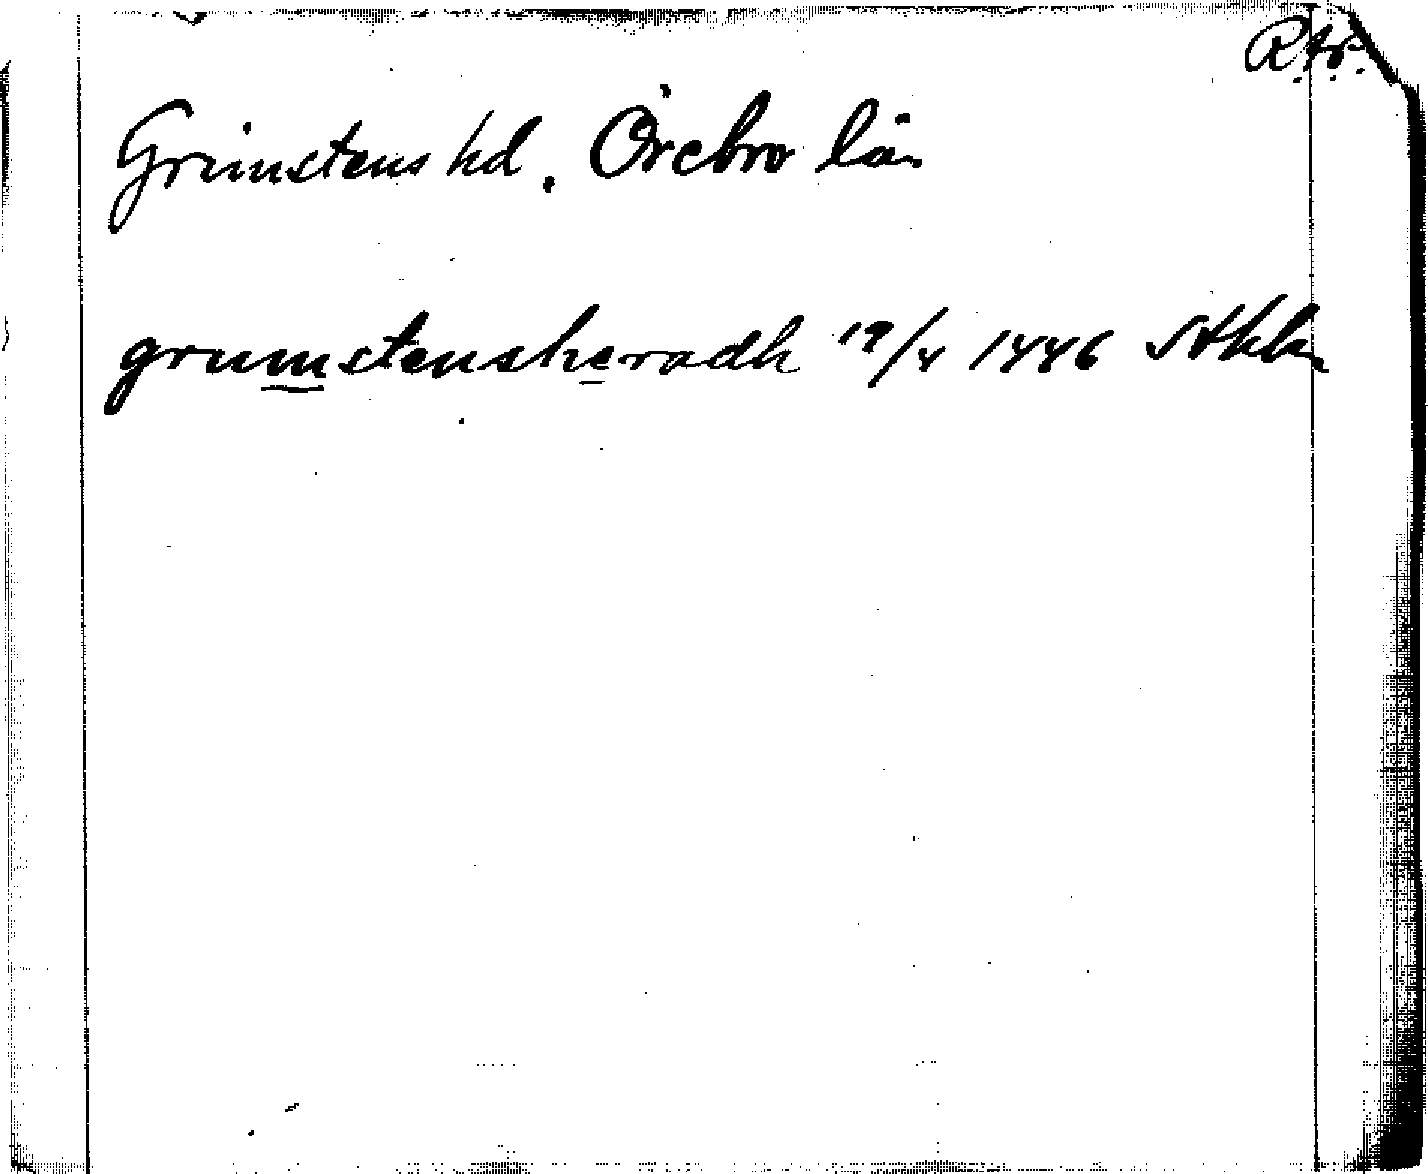 R.tr.
Grimstens hd. Örebro län
grumstensheradh 19/4 1446 Sthlm